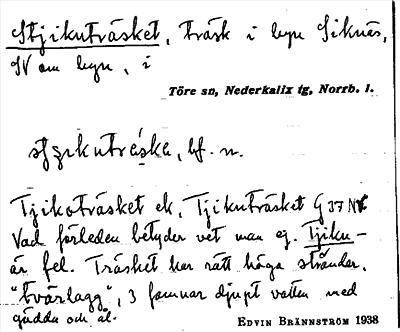 Stjikuträsket, träsk i byn Siknäs,
SV om byn, i
Töre sn, Nederkalix tg, Norrb. l.
stjikuträske, bf. n.
Tjikoträsket ek, Tjikuträsket G 37 NV
Vad förleden betyder vet man ej. Tjiku-
är fel. Träsket har rätt höga stränder.
"tvärlagg", 3 famnar djupt vatten med
gädda och äl.
EDVIN BRÄNNSTRÖM 1938